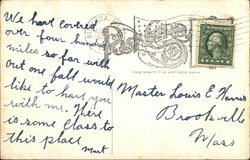 We have covered
over four hundred
miles so far with
out one fall would
like to have you
with me. There
is some class to
this place
Mart
THIS SPACE FOR ADDRESS ONLY
Master Louis E. Haven
Brookville
Mass